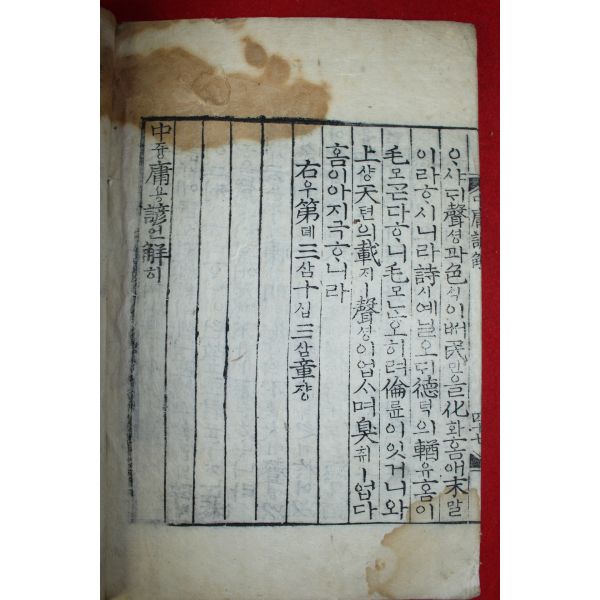 中庸諺解 四十七
ᄋᆞ샤ᄃᆡ聲셩과色ᄉᆡᆨ이ᄡᅥ民민을化화홈애末말
이라ᄒᆞ시니라詩시예닐오ᄃᆡ德덕의輶유홈이
毛모ᄀᆞᆮ다ᄒᆞ니毛모ᄂᆞᆫ오히려倫륜이잇거니와
上샹天텬의載ᄌᆡㅣ聲셩이업ᄉᆞ며臭취ㅣ업다
홈이아지극ᄒᆞ니라
右우第뎨三삼十십三삼章쟝
中듕庸용諺언解ᄒᆡ